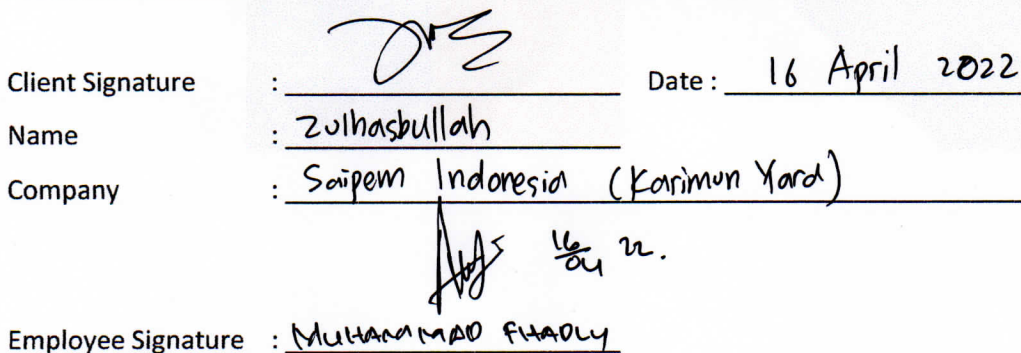 Client Signature : Date : 16 April 2022
Name : Zulhasbullah
Company : Saipem Indonesia (Karimun Yard)
16/04 22.
Employee Signature : MUHAMMAD FHADLY